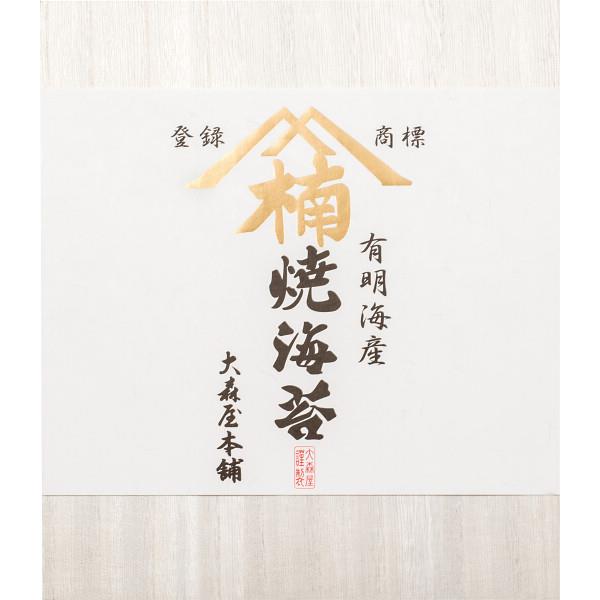 登録 商標
楠
焼海苔
有明海産
大森屋本舗
大森屋
謹製